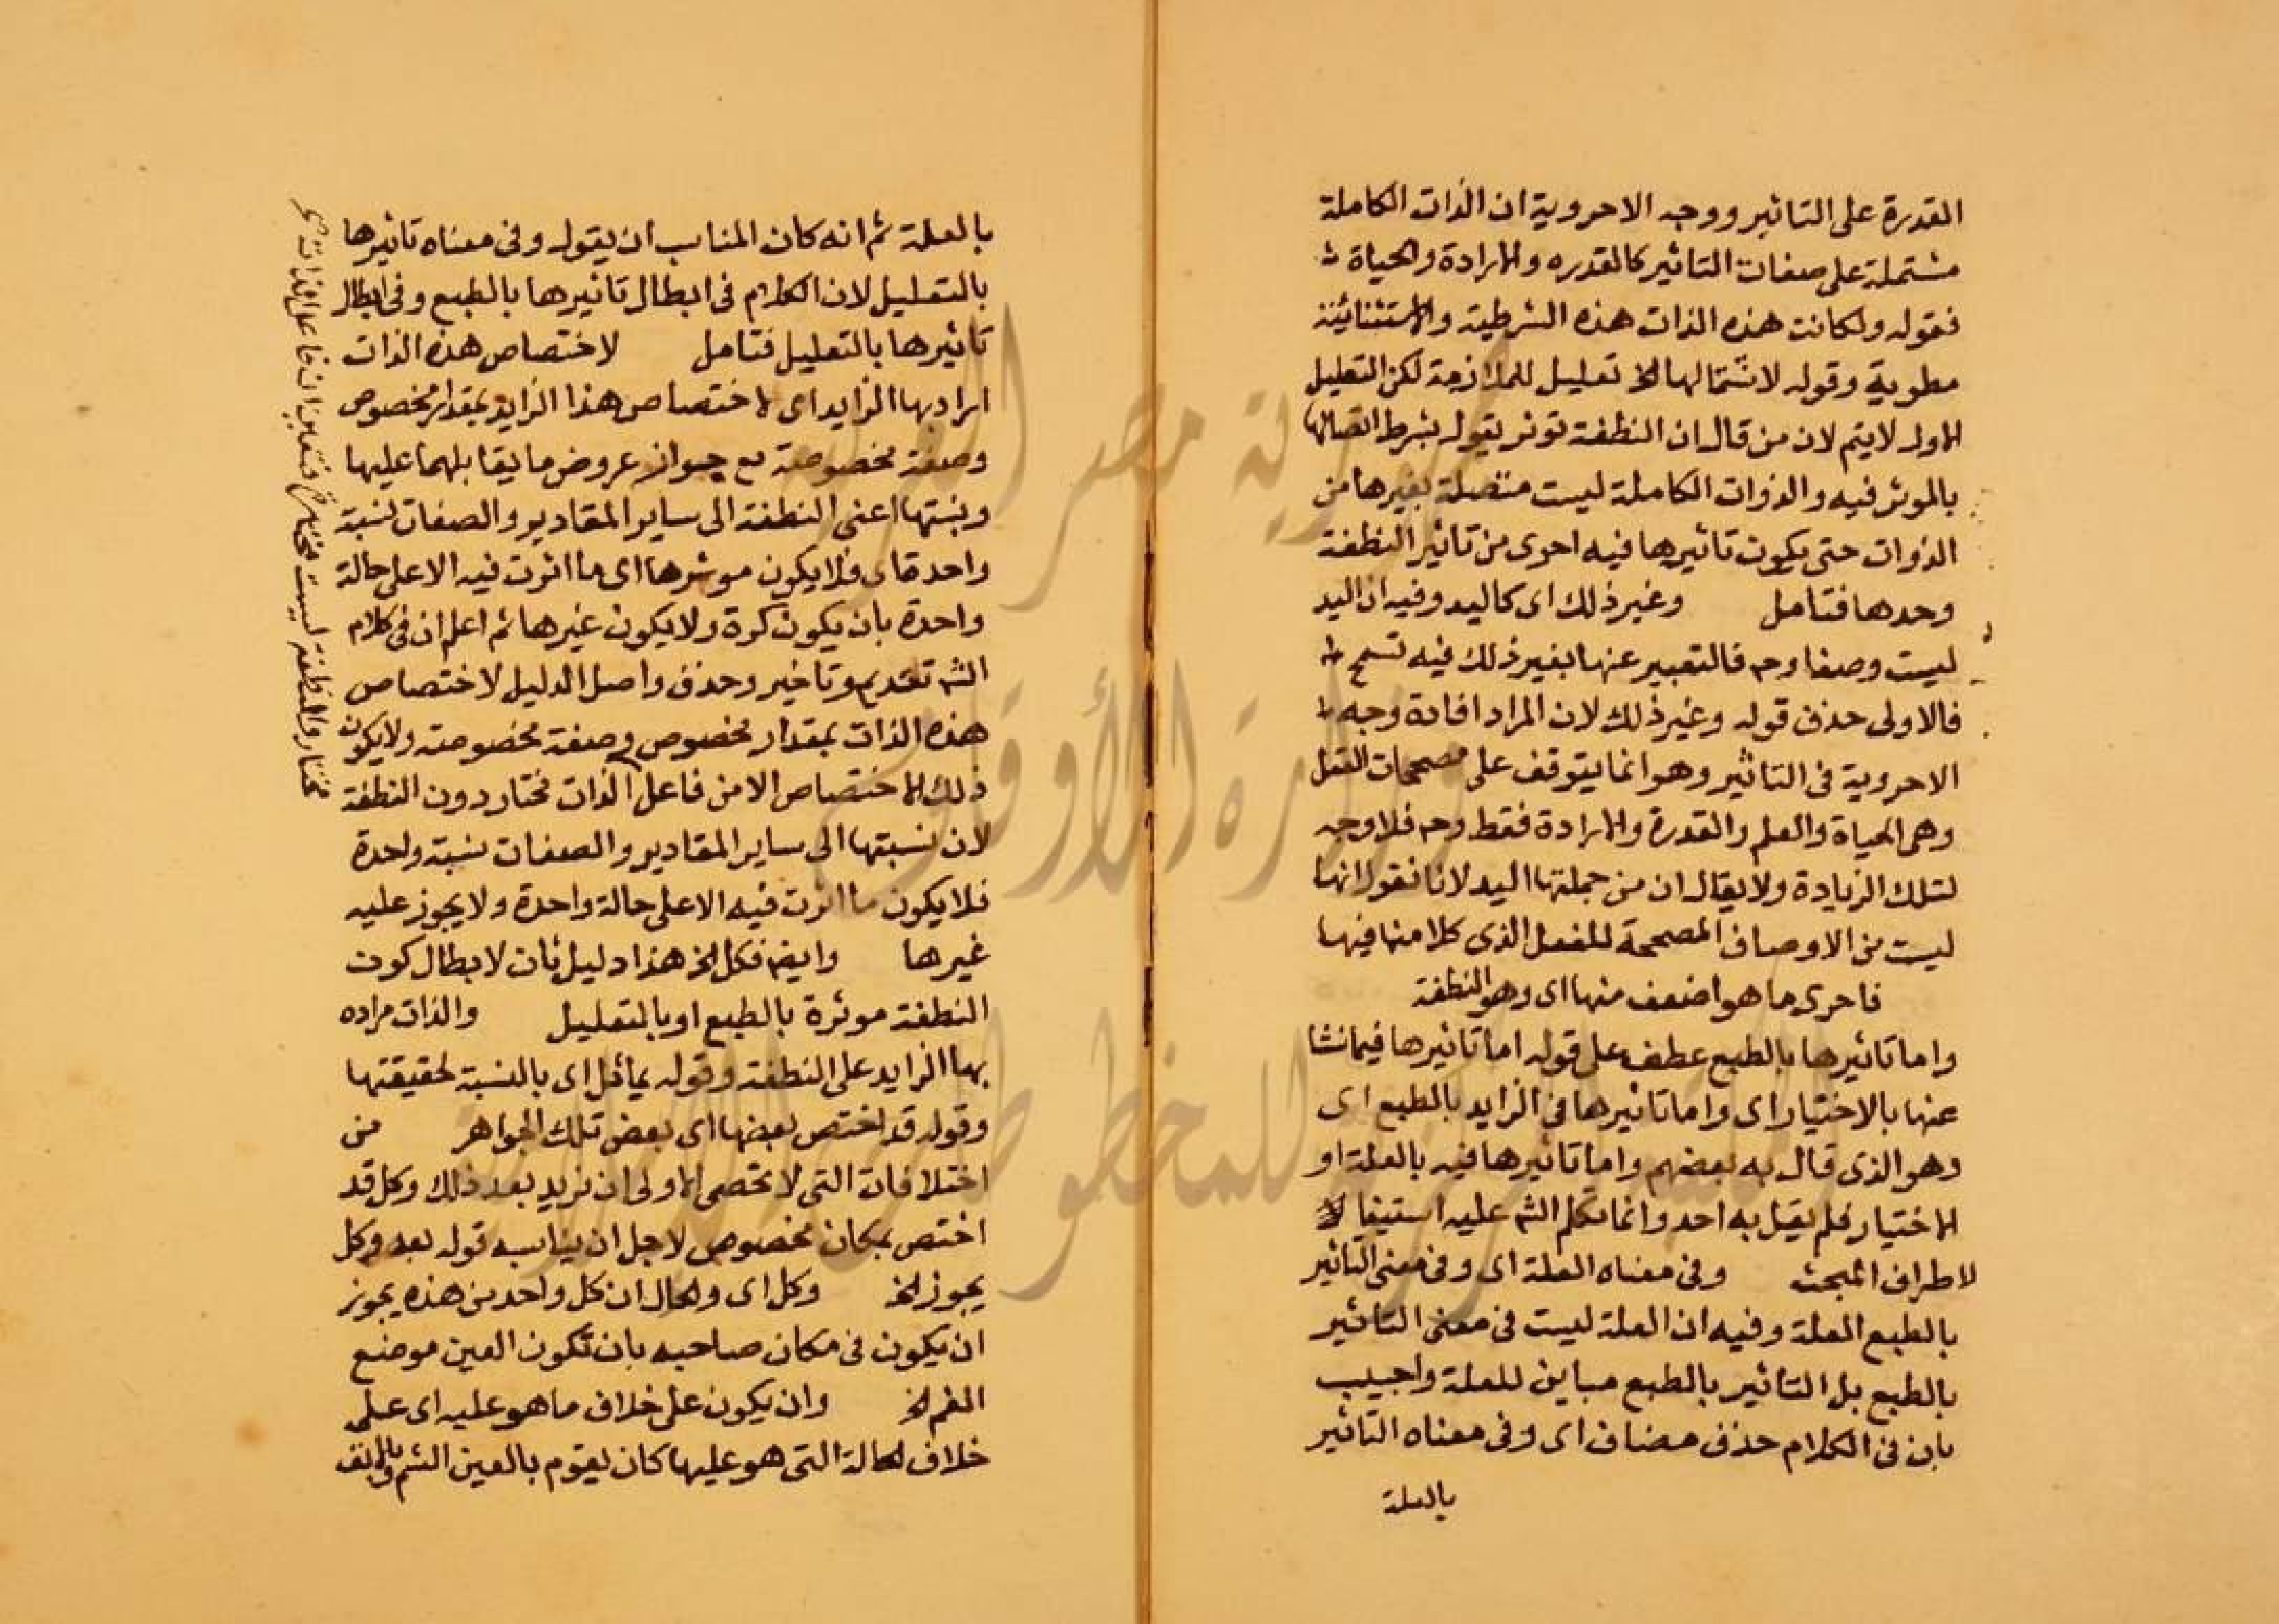 القدرة على التاثير ووجه الاحروية ان الذات الكاملة
مشتملة على صفات التاثير كالقدره والارادة والحياة
فقوله ولكانت هذه الذات هذه الشرطية والاستثنائية
مطوية وقوله لاشتمالها الخ تعليل للملازمة لكن التعليل
الاول لا يتم لان من قال ان النطفة توثر يقول بشرط اتصالها
بالموثر فيه والذوات الكاملة ليست متصلة بغيرها من
الذوات حتى يكون تاثيرها فيه احرى من تاثير النطفة
وحدها فتامل وغير ذلك اى كاليد وفيه ان اليد
ليست وصفا وح فالتعبير عنها بغير ذلك فيه تسمح
فالاولى حذف قوله وغير ذلك لان المراد افادة وجه
الاحروية فى التاثير وهو انما يتوقف على مصححات الفعل
وهى الحياة والعلم والقدرة والارادة فقط وح فلا وجه
لتلك الزيادة ولا يقال ان من جملتها اليد لانا نقول انها
ليست من الاوصاف المصححة للفعل الذى كلامنا فيها
فاحرى ما هو اضعف منها اى وهو النطفة
واما تاثيرها بالطبع عطف على قوله اما تاثيرها فيما نشا
عنها بالاختيار اى واما تاثيرها فى الزايد بالطبع اى
وهو الذى قال به بعضهم واما تاثيرها فيه بالعلة او
الاختيار فلم يقل به احد وانما تكلم الشم عليه استيفا
لاطراف المبحث وفى معناه العلة اى وفى معنى التاثير
بالطبع العلة وفيه ان العلة ليست فى معنى التاثير
بالطبع بل التاثير بالطبع مباين للعلة واجيب
بان فى الكلام حذف مضاف اى وفى معناه التاثير
بالعلة
بالعلة ثم انه كان المناسب ان يقول وفى معناه تاثيرها
بالتعليل لان الكلام فى ابطال تاثيرها بالطبع وفى ابطال
تاثيرها بالتعليل فتامل لاختصاص هذه الذات
اراد بها الزايد اى لاختصاص هذا الزايد بمقدار مخصوص
وصفة مخصوصة مع جواز عروض ما يقابلهما عليها
ونسبتها اعنى النطفة الى ساير المقادير والصفات نسبة
واحدة اى فلا يكون موثرها اى ما اثرت فيه الا على حالة
واحدة بان يكون كرة ولا يكون غيرها ثم اعلم ان فى كلام
الشم تقديم وتاخير وحذف واصل الدليل لاختصاص
هذه الذات بمقدار مخصوص وصفة مخصوصة ولا يكون
ذلك الاختصاص الا من فاعل الذات مختار دون النطفة
لان نسبتها الى ساير المقادير والصفات نسبة واحدة
فلا يكون ما اثرت فيه الا على حالة واحدة ولا يجوز عليه
غيرها وايضا فكل الخ هذا دليل ثان لابطال كون
النطفة موثرة بالطبع او بالتعليل والذات مراده
بها الزايد على النطفة وقوله يماثل اى بالنسبة لحقيقتها
وقوله قد اختص بعضها اى بعض تلك الجواهر من
اختلافات التى لا تحصى الاولى ان يزيد بعد ذلك وكل قد
اختص بمكان مخصوص لاجل ان يناسبه قوله بعد وكل
يجوز الخ وكل اى والحال ان كل واحد من هذه يجوز
ان يكون فى مكان صاحبه بان تكون العين موضع
الفم الخ وان يكون على خلاف ما هو عليه اى على
خلاف الحالة التى هو عليها كان يقوم بالعين الشم وبالانف